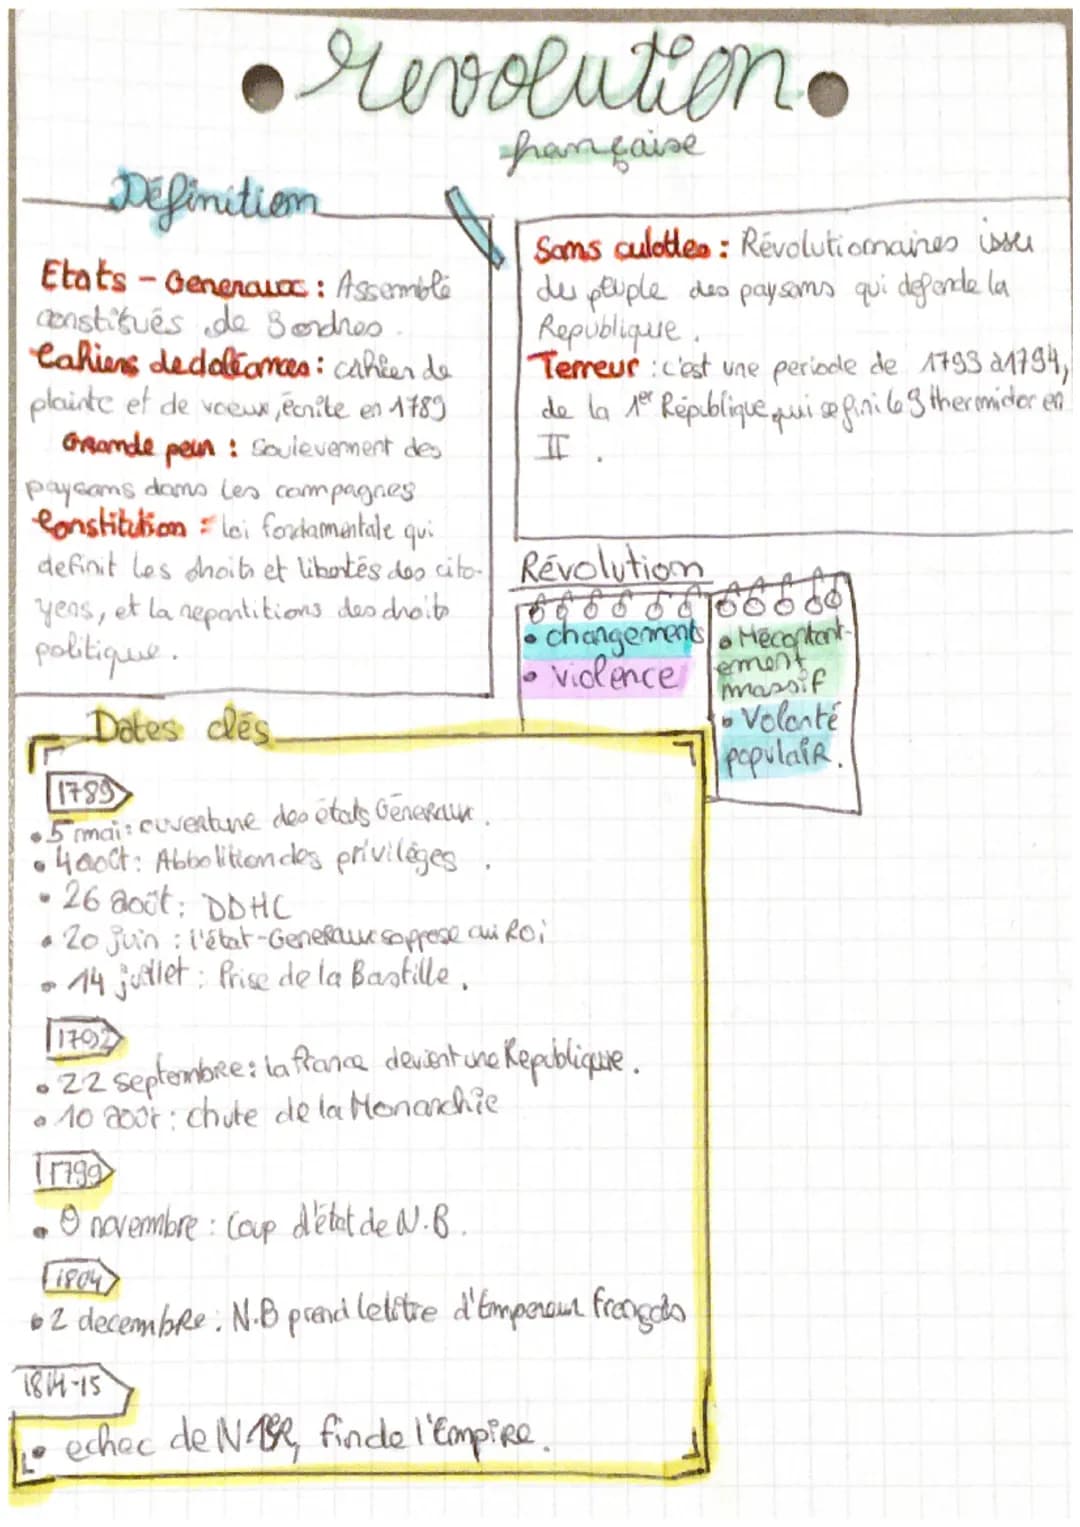 • révolution •
française
Définition
Etats - Generaux : Assemblé
constitués de 3 ordres.
Cahiers de doléances : cahier de
plainte et de voeux, écrite en 1789
Grande peur : Soulevement des
paysans dans les campagnes
Constitution : loi fondamentale qui
definit les droits et libertés des cito-
yens, et la repartitions des droits
politique.
Sans culottes : Révolutionnaires issu
du peuple des paysans qui defende la
Republique.
Terreur : c'est une periode de 1793 à 1794,
de la 1er République qui se fini le 9 thermidor en
II.
Révolution
• changements
• Violence
• Mécontent-
ement
massif
• Volonté
populaiR.
Dates clés
1789
• 5 mai : ouverture des états Géneraux.
• 4 août : Abbolition des privilèges.
• 26 août : DDHC
• 20 juin : l'état-Generaux soppose au Roi
• 14 juillet : Prise de la Bastille.
1792
• 22 septembre : la france devient une Republique.
• 10 août : chute de la Monarchie
1799
• 9 novembre : Coup d'état de N.B.
1804
• 2 decembre : N.B prend le titre d'Empereur français
1814-15
• echec de N.B, fin de l'Empire.